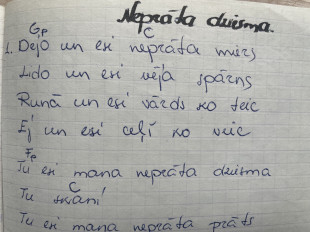 Neprāta dziesma.
Gp C
1. Dejo un esi neprāta mirs
Lido un esi vēja spārns
Runā un esi vārds ko teic
Ej un esi ceļš ko veic
Fp
Tu esi mana neprāta dziesma
C
Tu skani
Tu esi mana neprāta prāts